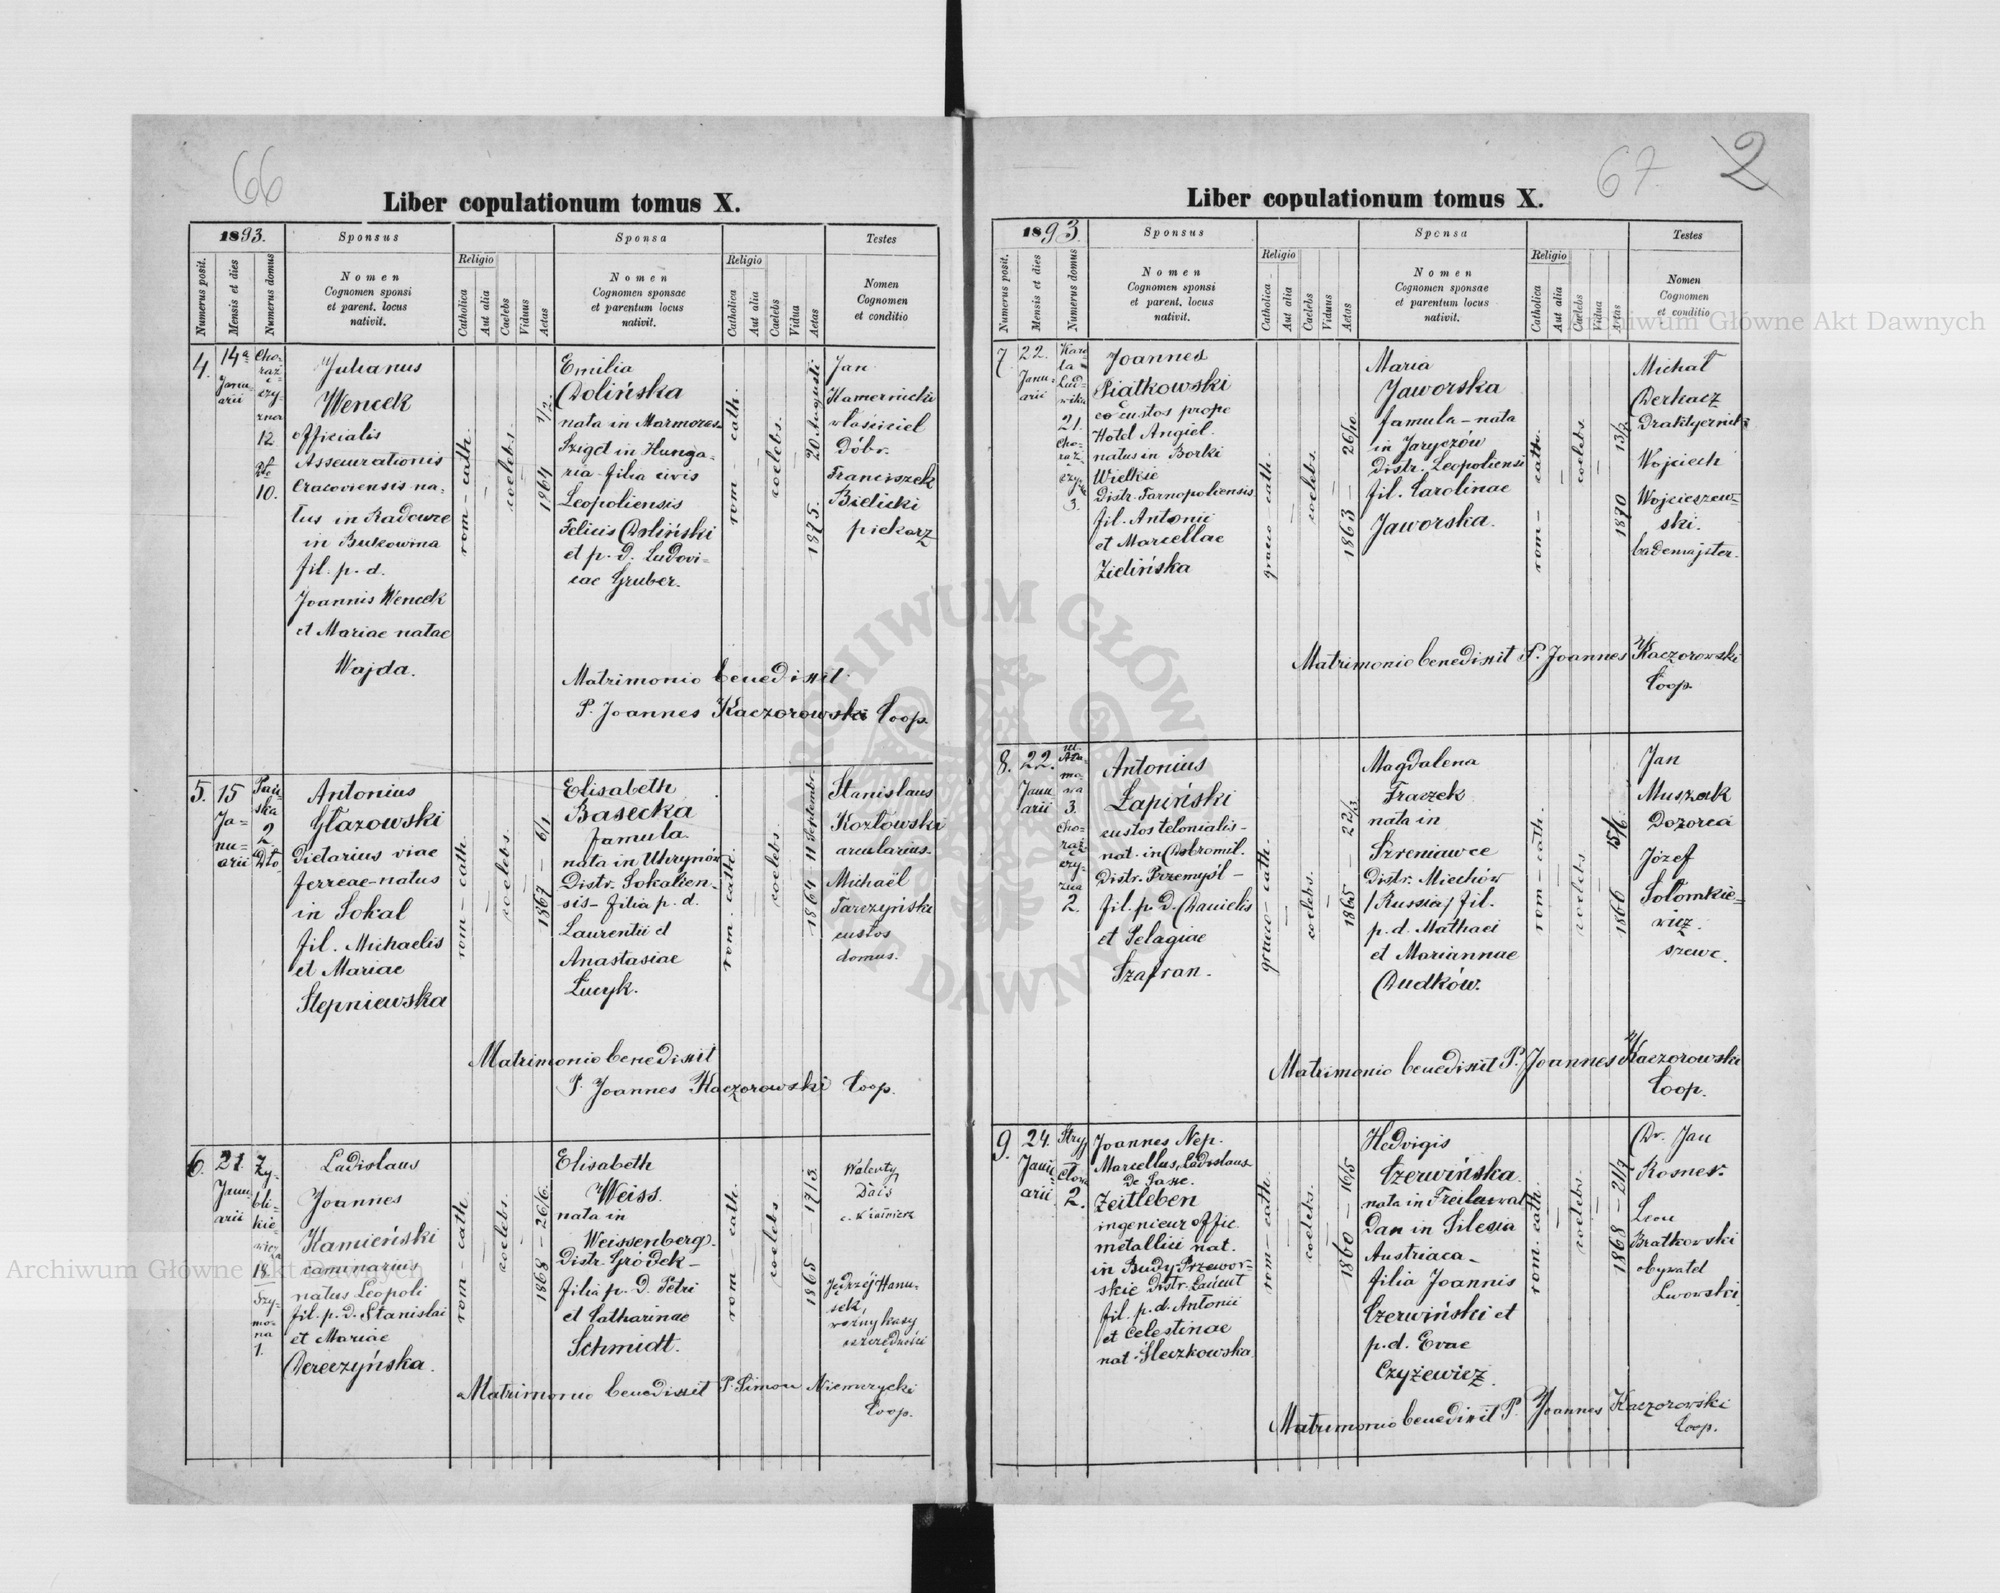 66
Liber copulationum tomus X.
1893.
Sponsus
Sponsa
Testes
Numerus posit.
Mensis et dies
Numerus domus
Nomen
Cognomen sponsi
et parent. locus
nativit.
Religio
Catholica
Aut alia
Caelebs
Viduus
Aetas
Nomen
Cognomen sponsae
et parentum locus
nativit.
Religio
Catholica
Aut alia
Caelebs
Vidua
Aetas
Nomen
Cognomen
et conditio
4.
14ª
Janu-
arii
Cho-
raż-
czy-
zna
12.
dto
10.
Julianus
Wencek
officialis
Assecurationis
Cracoviensis na-
tus in Radowce
in Bukowina
fil. p. d.
Joannis Wencek
et Mariae natae
Wajda.
rom-cath.
coelebs.
1864 1/2.
Emilia
Dolińska
nata in Marmoros-
Sziget in Hunga-
ria-filia civis
Leopoliensis
Felicis Doliński
et p. d. Ludovi-
cae Gruber.
rom-cath.
coelebs.
1875. 20 Augusti
Jan
Kamernicki
właściciel
Dóbr.
Franciszek
Bielicki
piekarz
Matrimonio benedixit
P. Joannes Kaczorowski Coop.
5.
15
Ja-
nu-
arii
Pań-
ska
2
dto
Antonius
Głazowski
dietarius viae
ferreae-natus
in Sokal
fil. Michaelis
et Mariae
Stepniewska
rom-cath.
coelebs.
1867 - 6/1
Elisabeth
Basecka
famula
nata in Uhrynów
Distr. Sokalien-
sis-filia p. d.
Laurentii et
Anastasiae
Lucyk.
rom. cath.
coelebs.
1864-11 Septembr.
Stanislaus
Kozłowski
arcularius.
Michaël
Tarczyński
custos
domus.
Matrimonio benedixit
P. Joannes Kaczorowski Coop.
6.
21.
Janu
arii
Zy-
bli-
kie-
wicza
18.
Szy-
mo-
na
1.
Ladislaus
Joannes
Kamieński
caminarius
natus Leopoli
fil. p. d. Stanislai
et Mariae
Dereczyńska.
rom-cath.
coelebs.
1868-26/6.
Elisabeth
Weiss.
nata in
Weissenberg.
Distr. Gródek-
filia p. d. Petri
et Catharinae
Schmidt.
rom-cath.
coelebs
1865 - 17/3.
Walenty
Dais
Jędrzej Hanu-
sek,
woźny kasy
oszczędności
Matrimonio benedixit P. Simon Niemczycki
Coop.
67
2
Liber copulationum tomus X.
1893.
Sponsus
Sponsa
Testes
Numerus posit.
Mensis et dies
Numerus domus
Nomen
Cognomen sponsi
et parent. locus
nativit.
Religio
Catholica
Aut alia
Caelebs
Viduus
Aetas
Nomen
Cognomen sponsae
et parentum locus
nativit.
Religio
Catholica
Aut alia
Caelebs
Vidua
Aetas
Nomen
Cognomen
et conditio
7
22.
Janu-
arii
Karo-
la
Lud-
wika
21.
Cho-
raż-
czy-
3.
Joannes
Piątkowski
custos prope
Hotel Angiel.
natus in Borki
Wielkie
Distr. Tarnopoliensis
fil. Antonii
et Marcellae
Zielińska
graeco-cath.
coelebs.
1863 - 26/10.
Maria
Jaworska
famula-nata
in Jaryczów
Distr. Leopoliensi
fil. Carolinae
Jaworska.
rom-cath.
coelebs.
1870 13/2
Michał
Derkacz
Wojciech
Wojcieszew-
ski.
bademajster.
Matrimonio benedixit P. Joannes Kaczorowski
Coop.
8.
22.
Janu
arii
Ada-
mo-
wa
3.
Cho-
raż-
czy-
zna
2.
Antonius
Łapiński
custos telonialis-
nat. in Dobromil.
Distr. Przemyśl-
fil. p. d. Danielis
et Pelagiae
Szafran.
graeco-cath.
coelebs.
1865 - 22/3
Magdalena
Fraczek
nata in
Szreniawce
Distr. Miechów
/Russia/ fil.
p. d. Mathaei
et Mariannae
Dudków.
rom-cath.
coelebs.
1866 15/6
Jan
Muszak
Dozorca
Józef
Sołomkie-
wicz
szewc.
Matrimonio benedixit P. Joannes Kaczorowski
Coop.
9.
24.
Janu
arii
2.
Joannes Nep.
Marcellus Ladislaus
Zeitleben
ingenieur offic.
metallici nat.
in Budy Przewor-
skie Distr. Łańcut
fil. p. d. Antonii
et Celestinae
nat. Śleczkowska
rom-cath.
coelebs.
1860 - 16/5
Hedvigis
Czerwińska.
nata in Freihewal
dan in Silesia
Austriaca-
filia Joannis
Czerwiński et
p. d. Evae
Czyżewicz.
rom. cath.
coelebs.
1868 - 21/7
Dr. Jan
Rosner.
Leon
Bratkowski
obywatel
Lwowski.
Matrimonio benedixit P. Joannes Kaczorowski
Coop.
Archiwum Główne Akt Dawnych
Archiwum Główne Akt Dawnych
ARCHIWUM GŁÓWNE AKT DAWNYCH